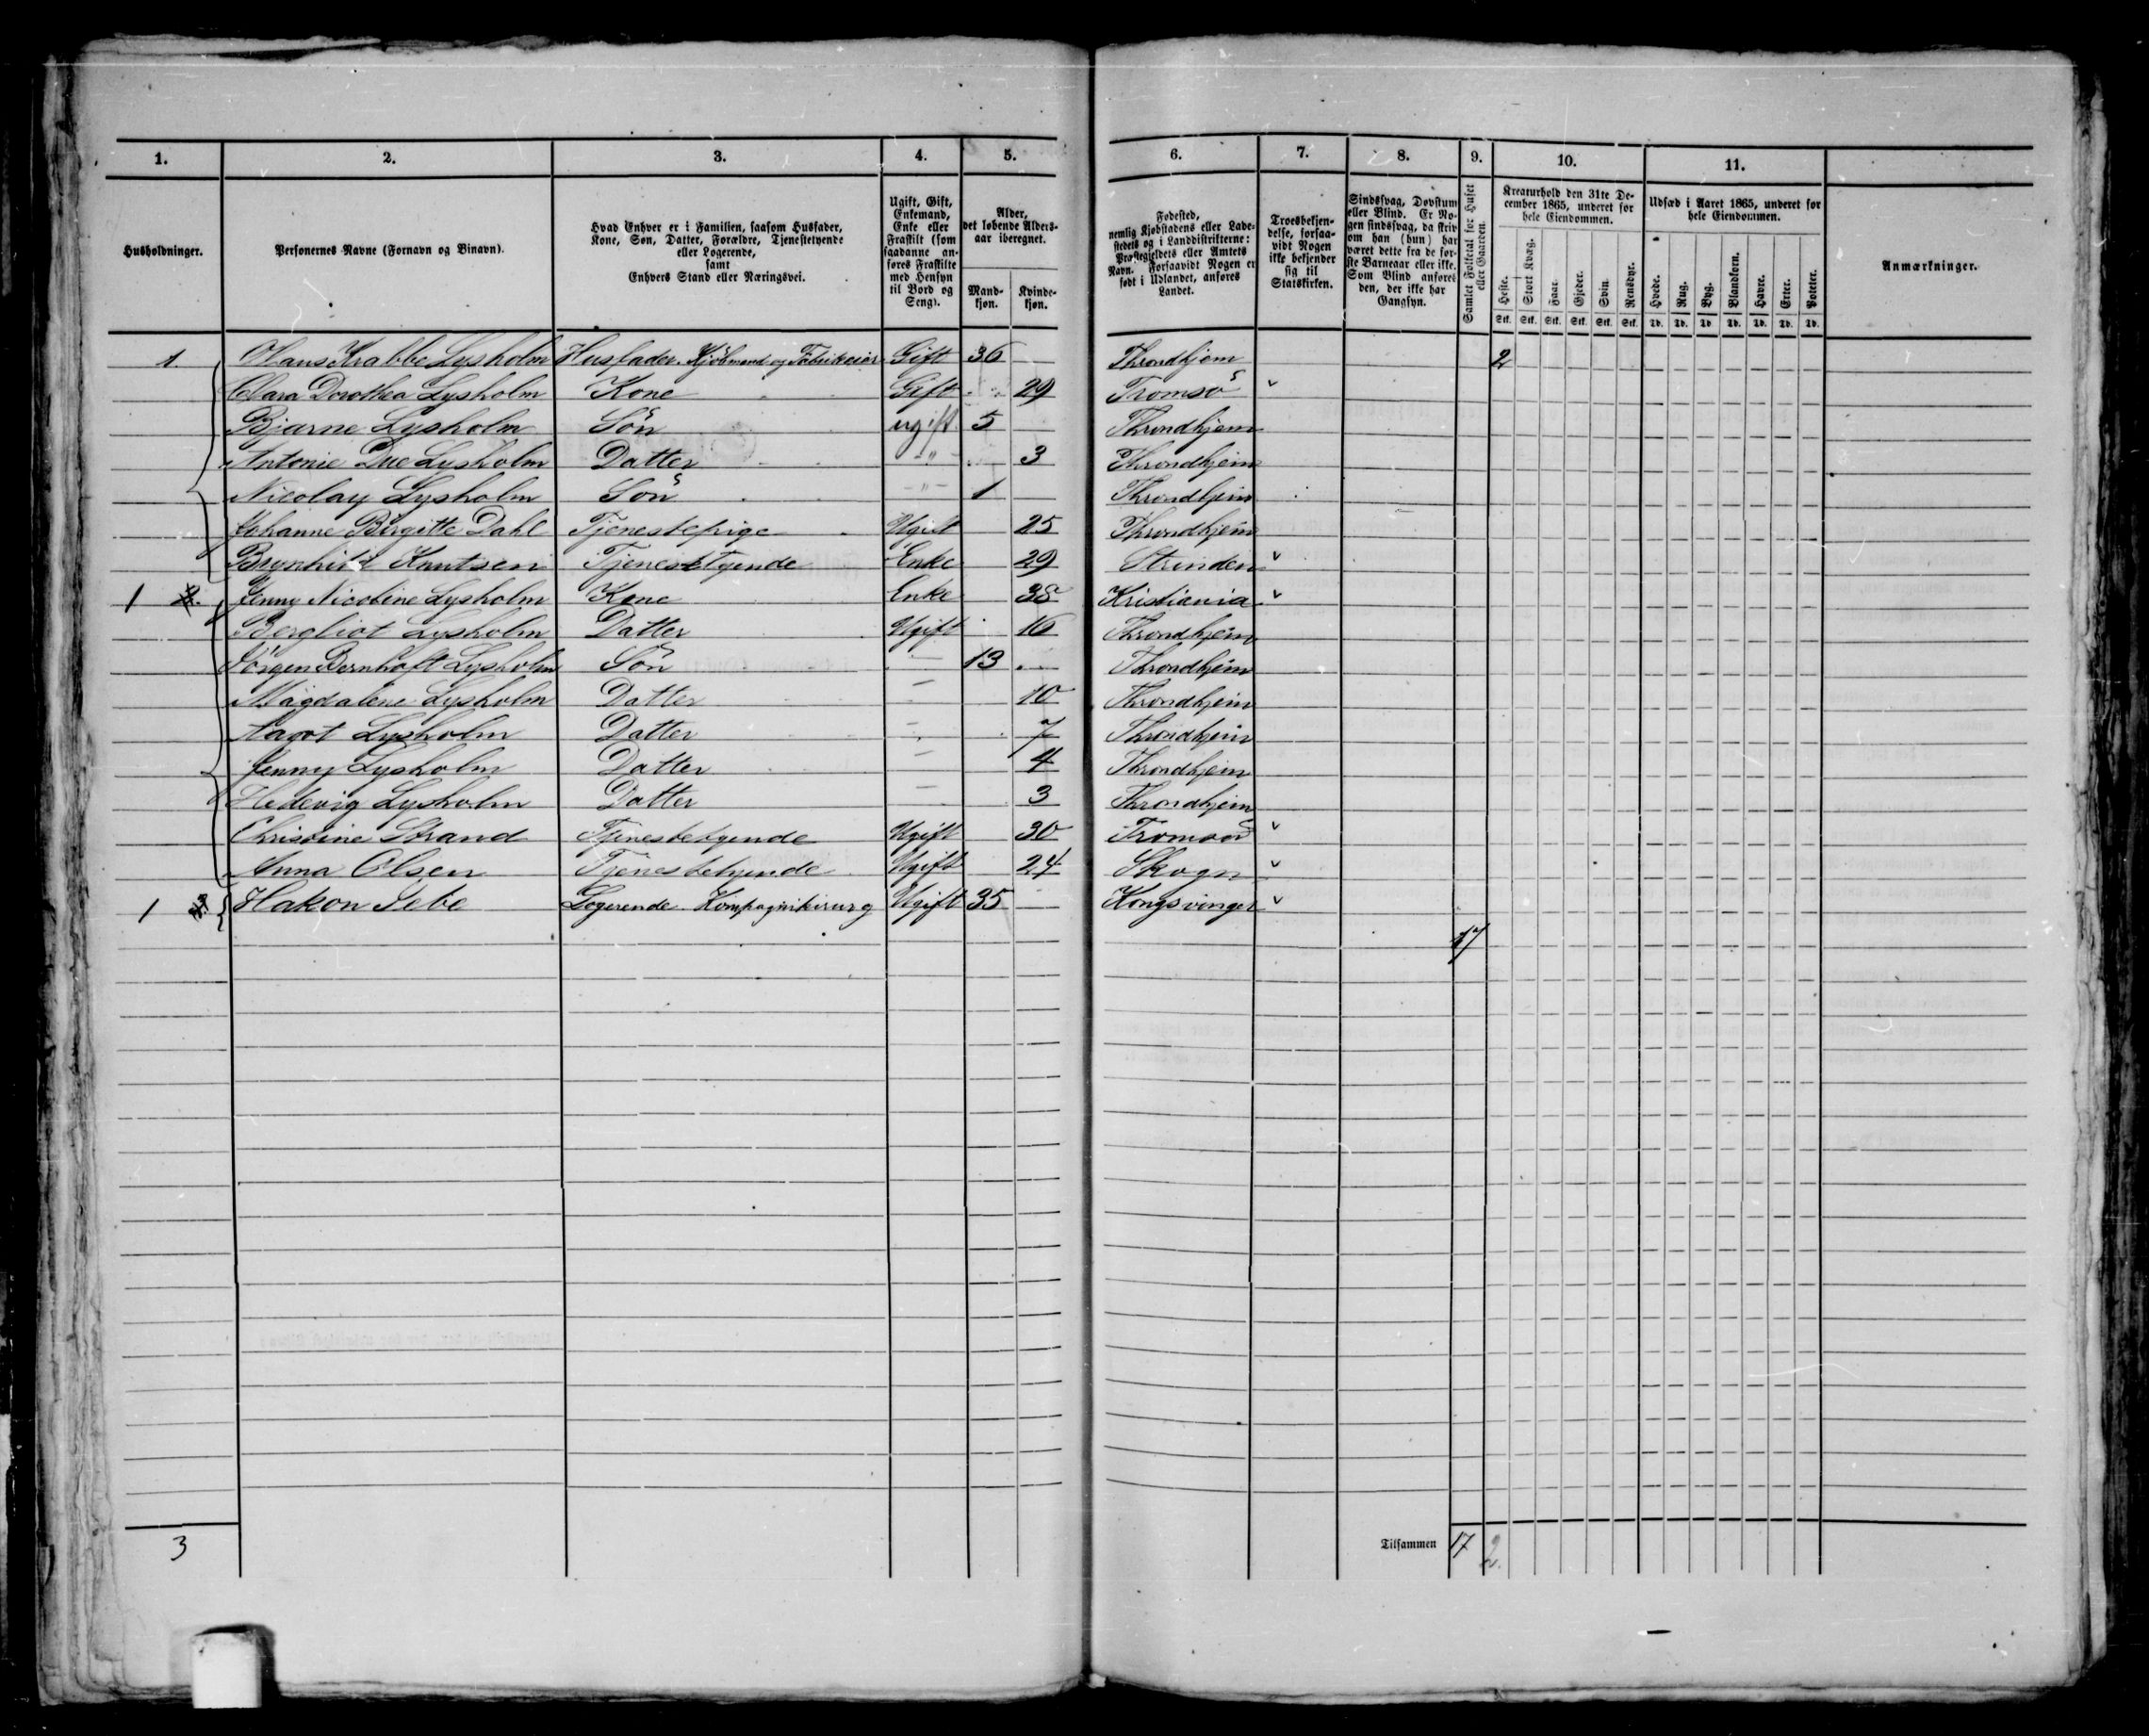 1. 2. 3. 4. 5. 6. 7. 8. 9. 10. 11.
Husholdninger.
Personernes Navne (Fornavn og Binavn).
Hvad Enhver er i Familien, saasom Husfader,
Kone, Søn, Datter, Forældre, Tjenestetyende
eller Logerende,
samt
Enhvers Stand eller Næringsvei.
Ugift, Gift,
Enkemand,
Enke eller
Fraskilt (som
saadanne an-
føres Fraskilte
med Hensyn
til Bord og
Seng).
Alder,
det løbende Alders-
aar iberegnet.
Mand-
kjøn.
Kvinde-
kjøn.
Fødested,
nemlig Kjøbstadens eller Lade-
stedets og i Landdistrikterne:
Præstegjeldets eller Amtets
Navn. Forsaavidt Nogen er
født i Udlandet, anføres
Landet.
Troesbekjen-
delse, forsaa-
vidt Nogen
ikke bekjender
sig til
Statskirken.
Sindssvag, Døvstum
eller Blind. Er No-
gen sindssvag, da skriv
om han (hun) har
været dette fra de før-
ste Barneaar eller ikke.
Som Blind anføres
den, der ikke har
Gangsyn.
Samlet Folketal for Huset
eller Gaarden.
Kreaturhold den 31te De-
cember 1865, underet for
hele Eiendommen.
Heste. Stort Kvæg. Faar. Gjeder. Svin. Rensdyr.
Stk. Stk. Stk. Stk. Stk. Stk.
Udsæd i Aaret 1865, underet for
hele Eiendommen.
Hvede. Rug. Byg. Blandkorn. Havre. Erter. Poteter.
Td. Td. Td. Td. Td. Td. Td.
Anmærkninger.
1. Claus Krabbe Lysholm Husfader. Kjöbmand og Fabrikeier Gift 36 Throndhjem 2
Clara Dorothea Lysholm Kone Gift 29 Tromsö v
Bjarne Lysholm Sön ugift 5 Throndhjem
Antonie Due Lysholm Datter -"- 3 Throndhjem
Nicolay Lysholm Sön -"- 1 Throndhjem
Johanne Birgitte Dahl Tjenestepige Ugift 25 Throndhjem
Brynhild Knutsen Tjenestetyende Enke 29 Strinden v
1 2. Jenny Nicoline Lysholm Kone Enke 38 Kristiania v
Bergliot Lysholm Datter Ugift 16 Throndhjem
Jörgen Bernhoft Lysholm Sön — 13 Throndhjem
Magdalene Lysholm Datter — 10 Throndhjem
Aagot Lysholm Datter — 7 Throndhjem
Jenny Lysholm Datter — 4 Throndhjem
Hedevig Lysholm Datter — 3 Throndhjem
Christine Strand Tjenestetyende Ugift 30 Tromsoe v
Anna Olsen Tjenestetyende Ugift 24 Skogn v
1 Hakon Sebe Logerende. Kompagnikirurg Ugift 35 Kongsvinger v
17
3 Tilsammen 17 2.